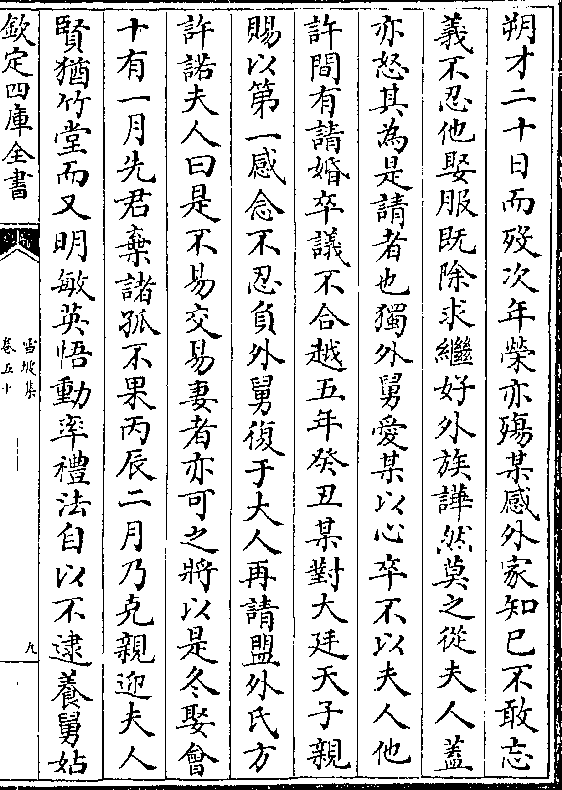 朔才二十日而殁次年榮亦殤某感外家知已不敢忘
義不忍他娶服既除求繼好外族譁然莫之從夫人蓋
亦怒其為是請者也獨外舅愛某以心卒不以夫人他
許間有請婚卒議不合越五年癸丑某對大廷天子親
賜以第一感念不忍負外舅復于大人再請盟外氏方
許諾夫人曰是不易交易妻者亦可之將以是冬娶會
十有一月先君棄諸孤不果丙辰二月乃克親迎夫人
賢猶竹堂而又明敏英悟動率禮法自以不逮養舅姑
欽定四庫全書
雪坡集
卷五十
九